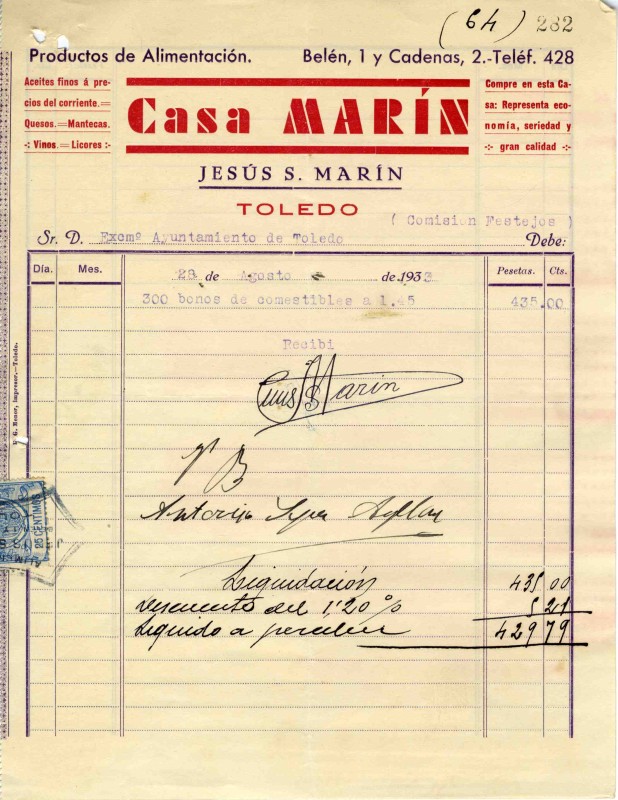 (64) 282
Productos de Alimentación. Belén, 1 y Cadenas, 2.-Teléf. 428
Aceites finos á pre-
cios del corriente.=
Quesos.=Mantecas.
·: Vinos.=Licores :·
Casa MARÍN
Compre en esta Ca-
sa: Representa eco-
nomía, seriedad y
·:· gran calidad ·:·
JESÚS S. MARÍN
TOLEDO
( Comision Festejos )
Sr. D. Excmº Ayuntamiento de Toledo Debe:
Día. Mes. Pesetas. Cts.
28 de Agosto de 1933
300 bonos de comestibles a 1.45 435.00
Recibi
Marin
Vº B
Antonio
Liquidación 435 00
descuento del 1'20 % 5 21
Liquido a percibir 429 79
Impresor.—Toledo.
25 CENTIMOS